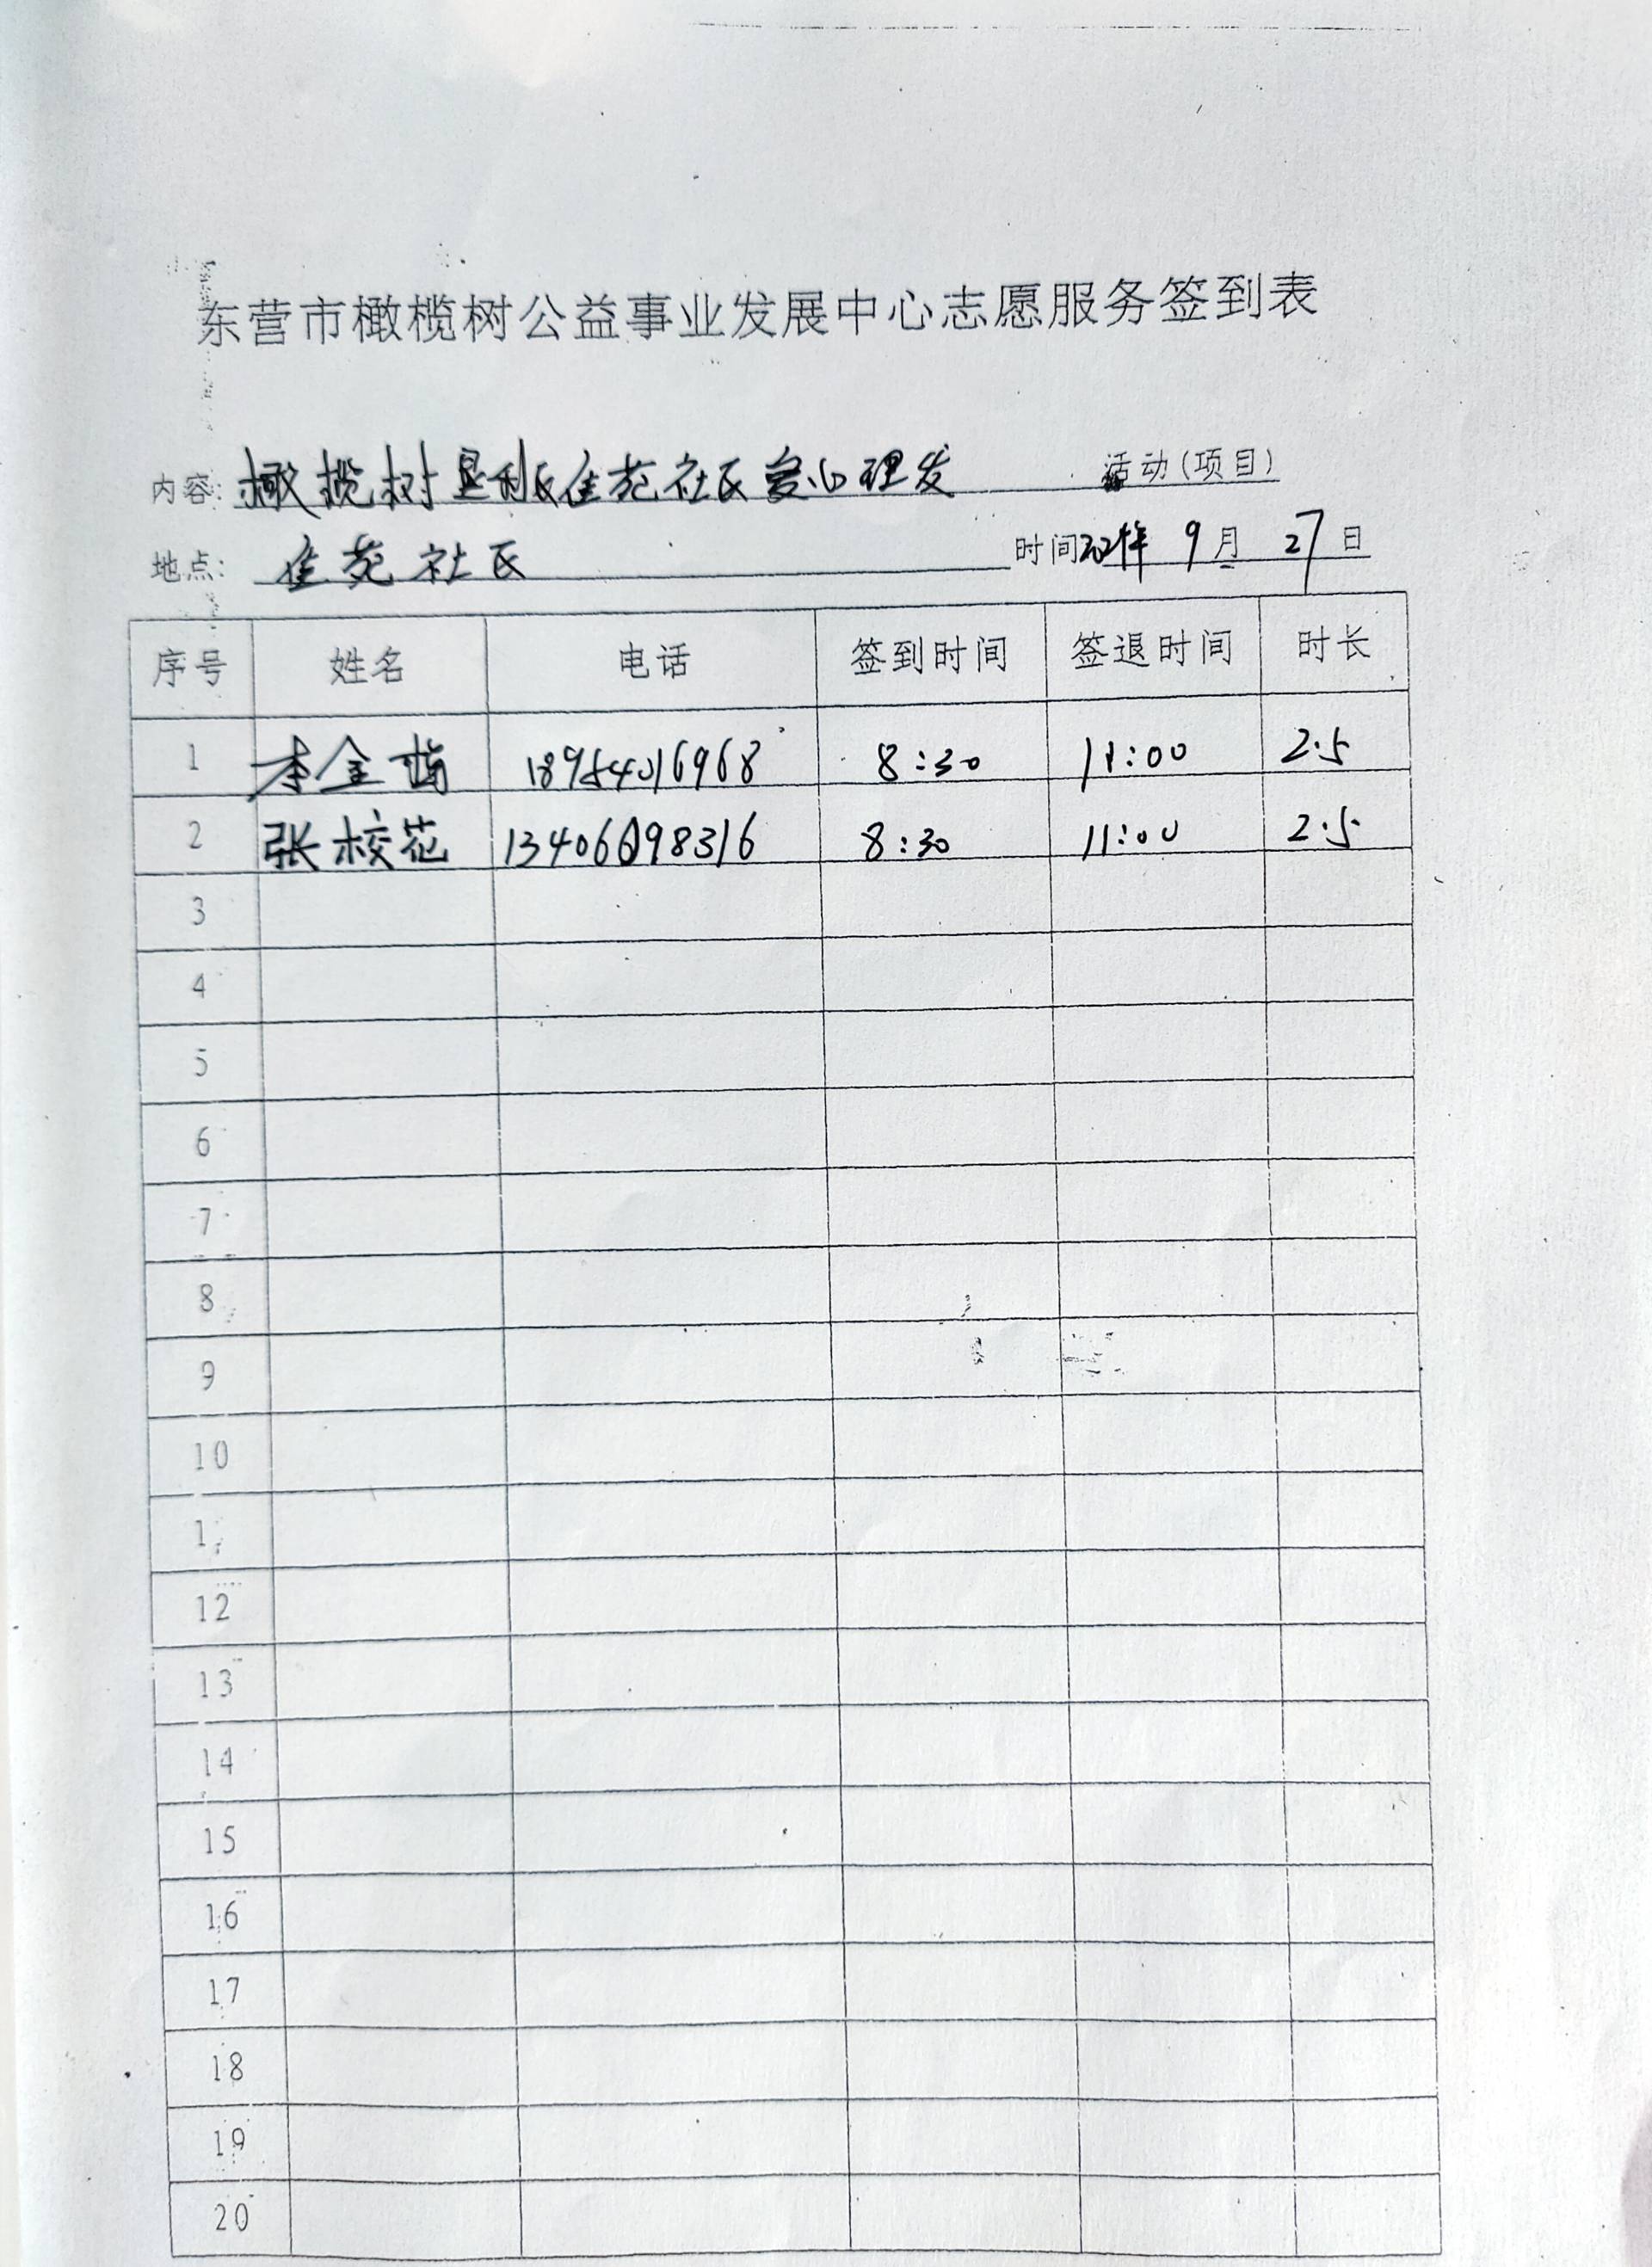 东营市橄榄树公益事业发展中心志愿服务签到表
内容: 橄榄树垦利区佳苑社区爱心理发 活动(项目)
地点: 佳苑社区 时间 年 9月 27日
序号 姓名 电话 签到时间 签退时间 时长
1 李金 8:30 11:00 2.5
2 张校花 13406698316 8:30 11:00 2.5
3
4
5
6
7
8
9
10
1
12
13
14
15
16
17
18
19
20